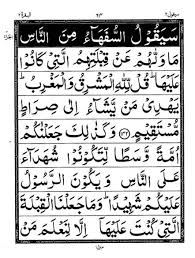 سيقول ٢
٢٣
البقرة ٢
سَيَقُوْلُ السُّفَهَآءُ مِنَ النَّاسِ
مَا وَلّٰىهُمْ عَنْ قِبْلَتِهِمُ الَّتِيْ كَانُوْا
عَلَيْهَا ؕ قُلْ لِّلّٰهِ الْمَشْرِقُ وَالْمَغْرِبُ ؕ
يَهْدِيْ مَنْ يَّشَآءُ اِلٰى صِرَاطٍ
مُّسْتَقِيْمٍ ﴿١٤٢﴾ وَكَذٰلِكَ جَعَلْنٰكُمْ
اُمَّةً وَّسَطًا لِّتَكُوْنُوْا شُهَدَآءَ
عَلَى النَّاسِ وَيَكُوْنَ الرَّسُوْلُ
عَلَيْكُمْ شَهِيْدًا ؕ وَمَا جَعَلْنَا الْقِبْلَةَ
الَّتِيْ كُنْتَ عَلَيْهَاۤ اِلَّا لِنَعْلَمَ مَنْ